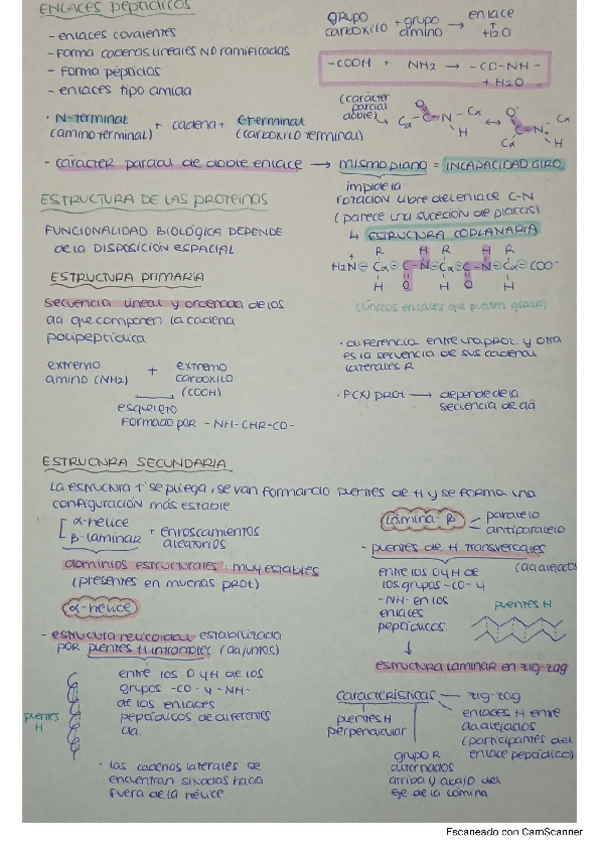 ENLACES PEPTÍDICOS
- enlaces covalentes
- forma cadenas lineales NO ramificadas
- forma péptidos
- enlaces tipo amida
grupo carboxilo + grupo amino → enlace + H2O
-COOH + NH2 → -CO-NH- + H2O
· N-terminal + cadena + C-terminal
(amino terminal) (carboxilo terminal)
(carácter parcial doble)
O Cα C N Cα H ↔ O⁻ Cα C N Cα H
- carácter parcial de doble enlace → mismo plano = INCAPACIDAD GIRO
impide la
rotación libre del enlace C-N
(parece una sucesión de placas)
↳ ESTRUCTURA COPLANARIA
R H R H R
H2N - Cα - C - N - Cα - C - N - Cα - COO⁻
H O H O H
(únicos enlaces que pueden girar)
· diferencia entre una prot. y otra
es la secuencia de sus cadenas
laterales R
· F(X) prot → depende de la
secuencia de aa
ESTRUCTURA DE LAS PROTEINAS
FUNCIONALIDAD BIOLÓGICA DEPENDE
de la DISPOSICIÓN ESPACIAL
ESTRUCTURA PRIMARIA
secuencia lineal y ordenada de los
aa que componen la cadena
polipeptídica.
extremo + extremo
amino (NH2) carboxilo
(COOH)
esqueleto
formado por -NH-CHR-CO-
ESTRUCTURA SECUNDARIA
La estructura 1ª se pliega, se van formando puentes de H y se forma una
configuración más estable
α-hélice
β-laminar + enroscamientos
aleatorios
dominios estructurales: muy estables
(presentes en muchas prot)
α-hélice
- estructura helicoidal estabilizada
por puentes H intramolec. (aa juntos)
entre los O y H de los
grupos -CO- y -NH-
de los enlaces
peptídicos de diferentes
aa.
puentes
H
· las cadenas laterales se
encuentran situadas hacia
fuera de la hélice
lámina β
paralelo
antiparalelo
- puentes de H transversales
(aa alejados)
entre los O y H de
los grupos -CO- y
-NH- en los
enlaces
peptídicos
puentes H
↓
estructura laminar en zig-zag
características — zig-zag
puentes H
perpendicular
enlaces H entre
aa alejados
(participantes del
enlace peptídico)
grupo R
alternados
arriba y abajo del
eje de la lámina
Escaneado con CamScanner